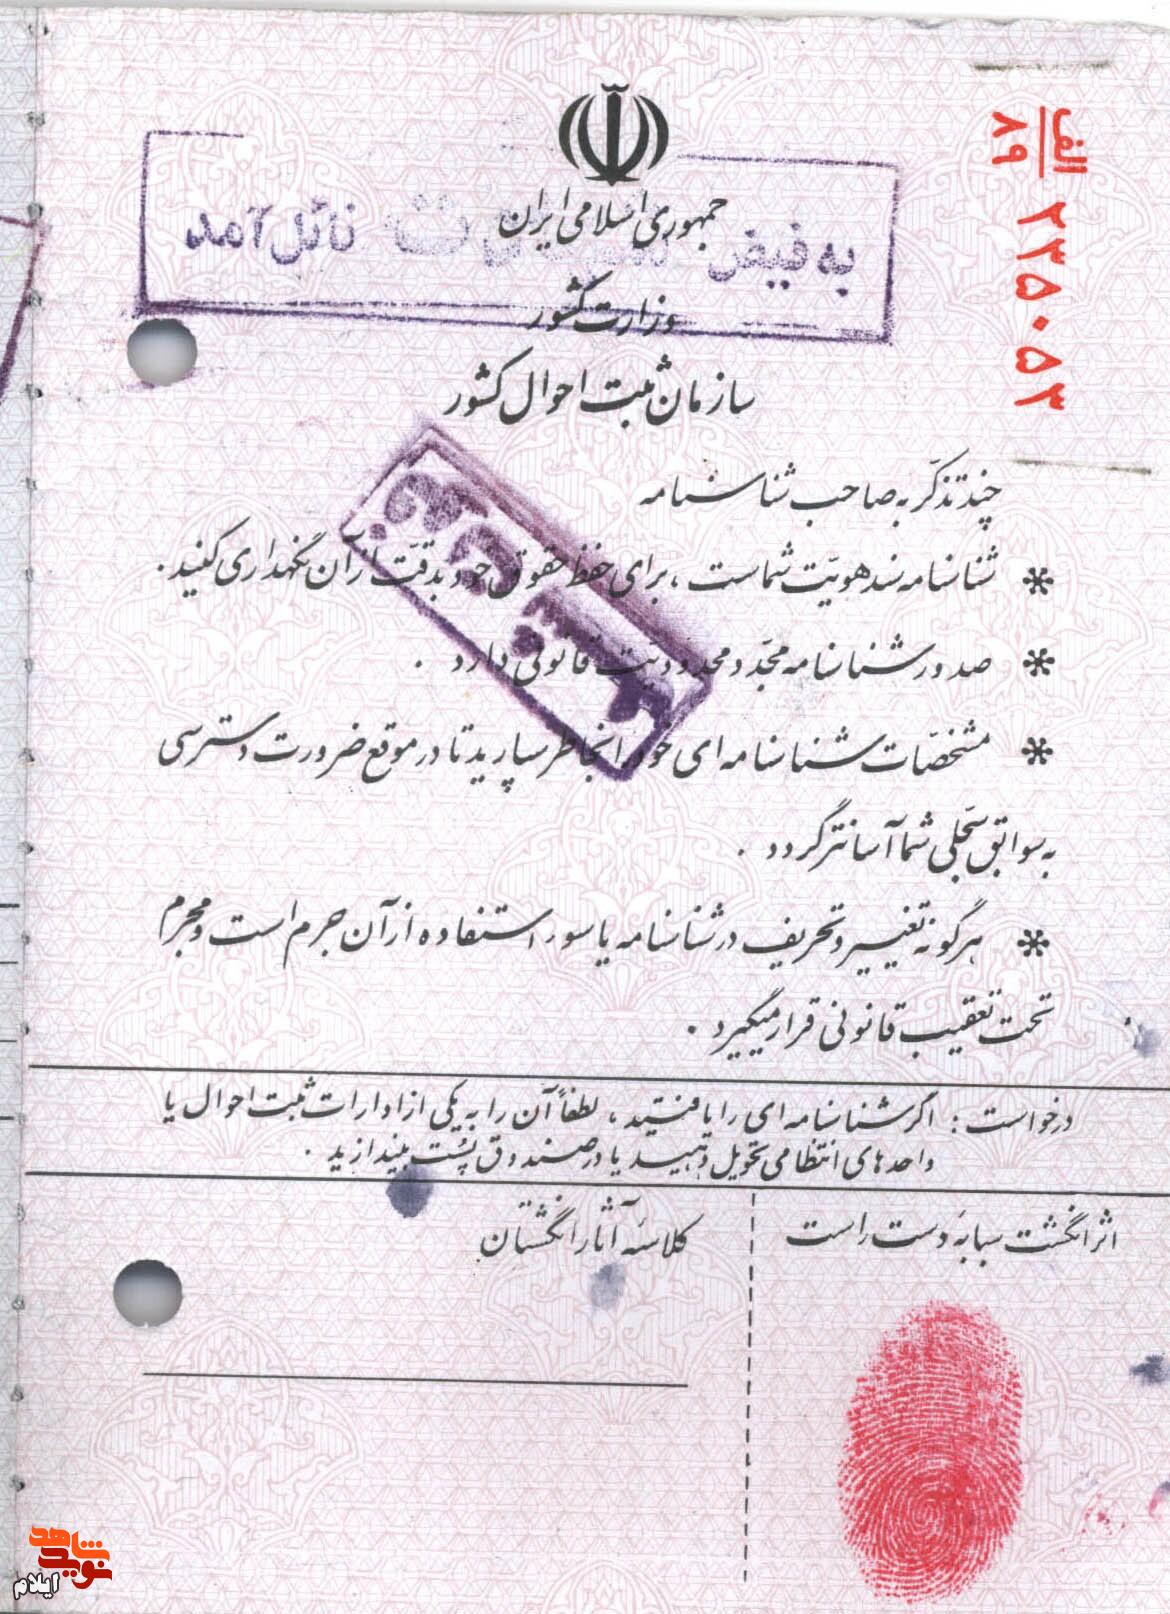 الف
۸۹
۲۳۵۰۵۳
جمهوری اسلامی ایران
به فیض نائل آمد
وزارت کشور
سازمان ثبت احوال کشور
چند تذکّر به صاحب شناسنامه
* شناسنامه سند هویّت شماست ، برای حفظ حقوق خود بدقّت از آن نگهداری کنید .
* صدور شناسنامه مجدّد محدودیّت قانونی دارد .
* مشخصّات شناسنامه ای خود را بخاطر بسپارید تا در موقع ضرورت دسترسی
به سوابق سجّلی شما آسانتر گردد .
* هر گونه تغییر و تحریف در شناسنامه یا سوء استفاده از آن جرم است و مجرم
تحت تعقیب قانونی قرار میگیرد .
درخواست : اگر شناسنامه ای را یافتید ، لطفاً آن را به یکی از ادارات ثبت احوال یا
واحدهای انتظامی تحویل دهید یا در صندوق پست بیندازید .
اثر انگشت سبابه دست راست
کلاسه آثار انگشتان
نوید شاهد
ایلام